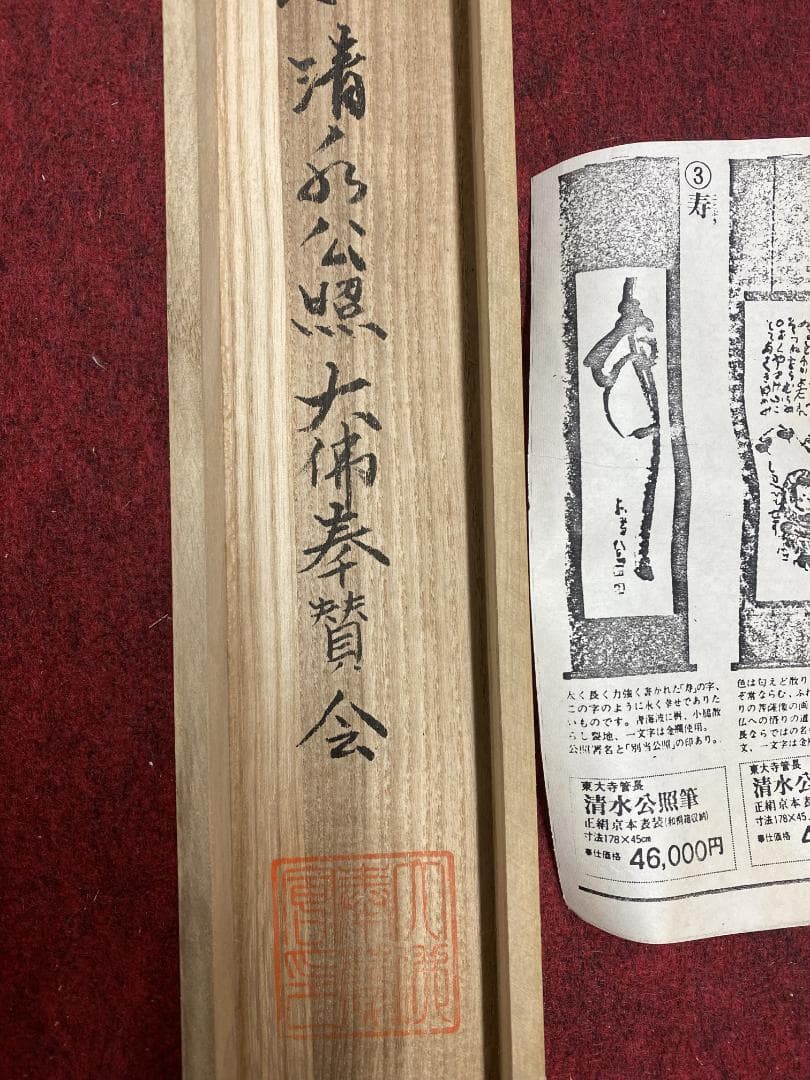 清水公照 大佛奉賛会
③
寿、
太く長く力強く書かれた「寿」の字、
この字のように永く幸せでありた
いものです。青海波に桐、小脇散
らし裂地、一文字は金襴使用。
公照署名と「別当公照」の印あり。
東大寺管長
清水公照筆
正絹京本表装(和桐箱収納)
寸法178×45cm
奉仕価格 46,000円
色は匂えど散り
ぞ常ならむ、ふ
りの菩薩像の画
仏への悟りの道
長ならではの名
文、一文字は金
東大寺管長
清水公
正絹京本表装
寸法178×45
奉仕価格 4